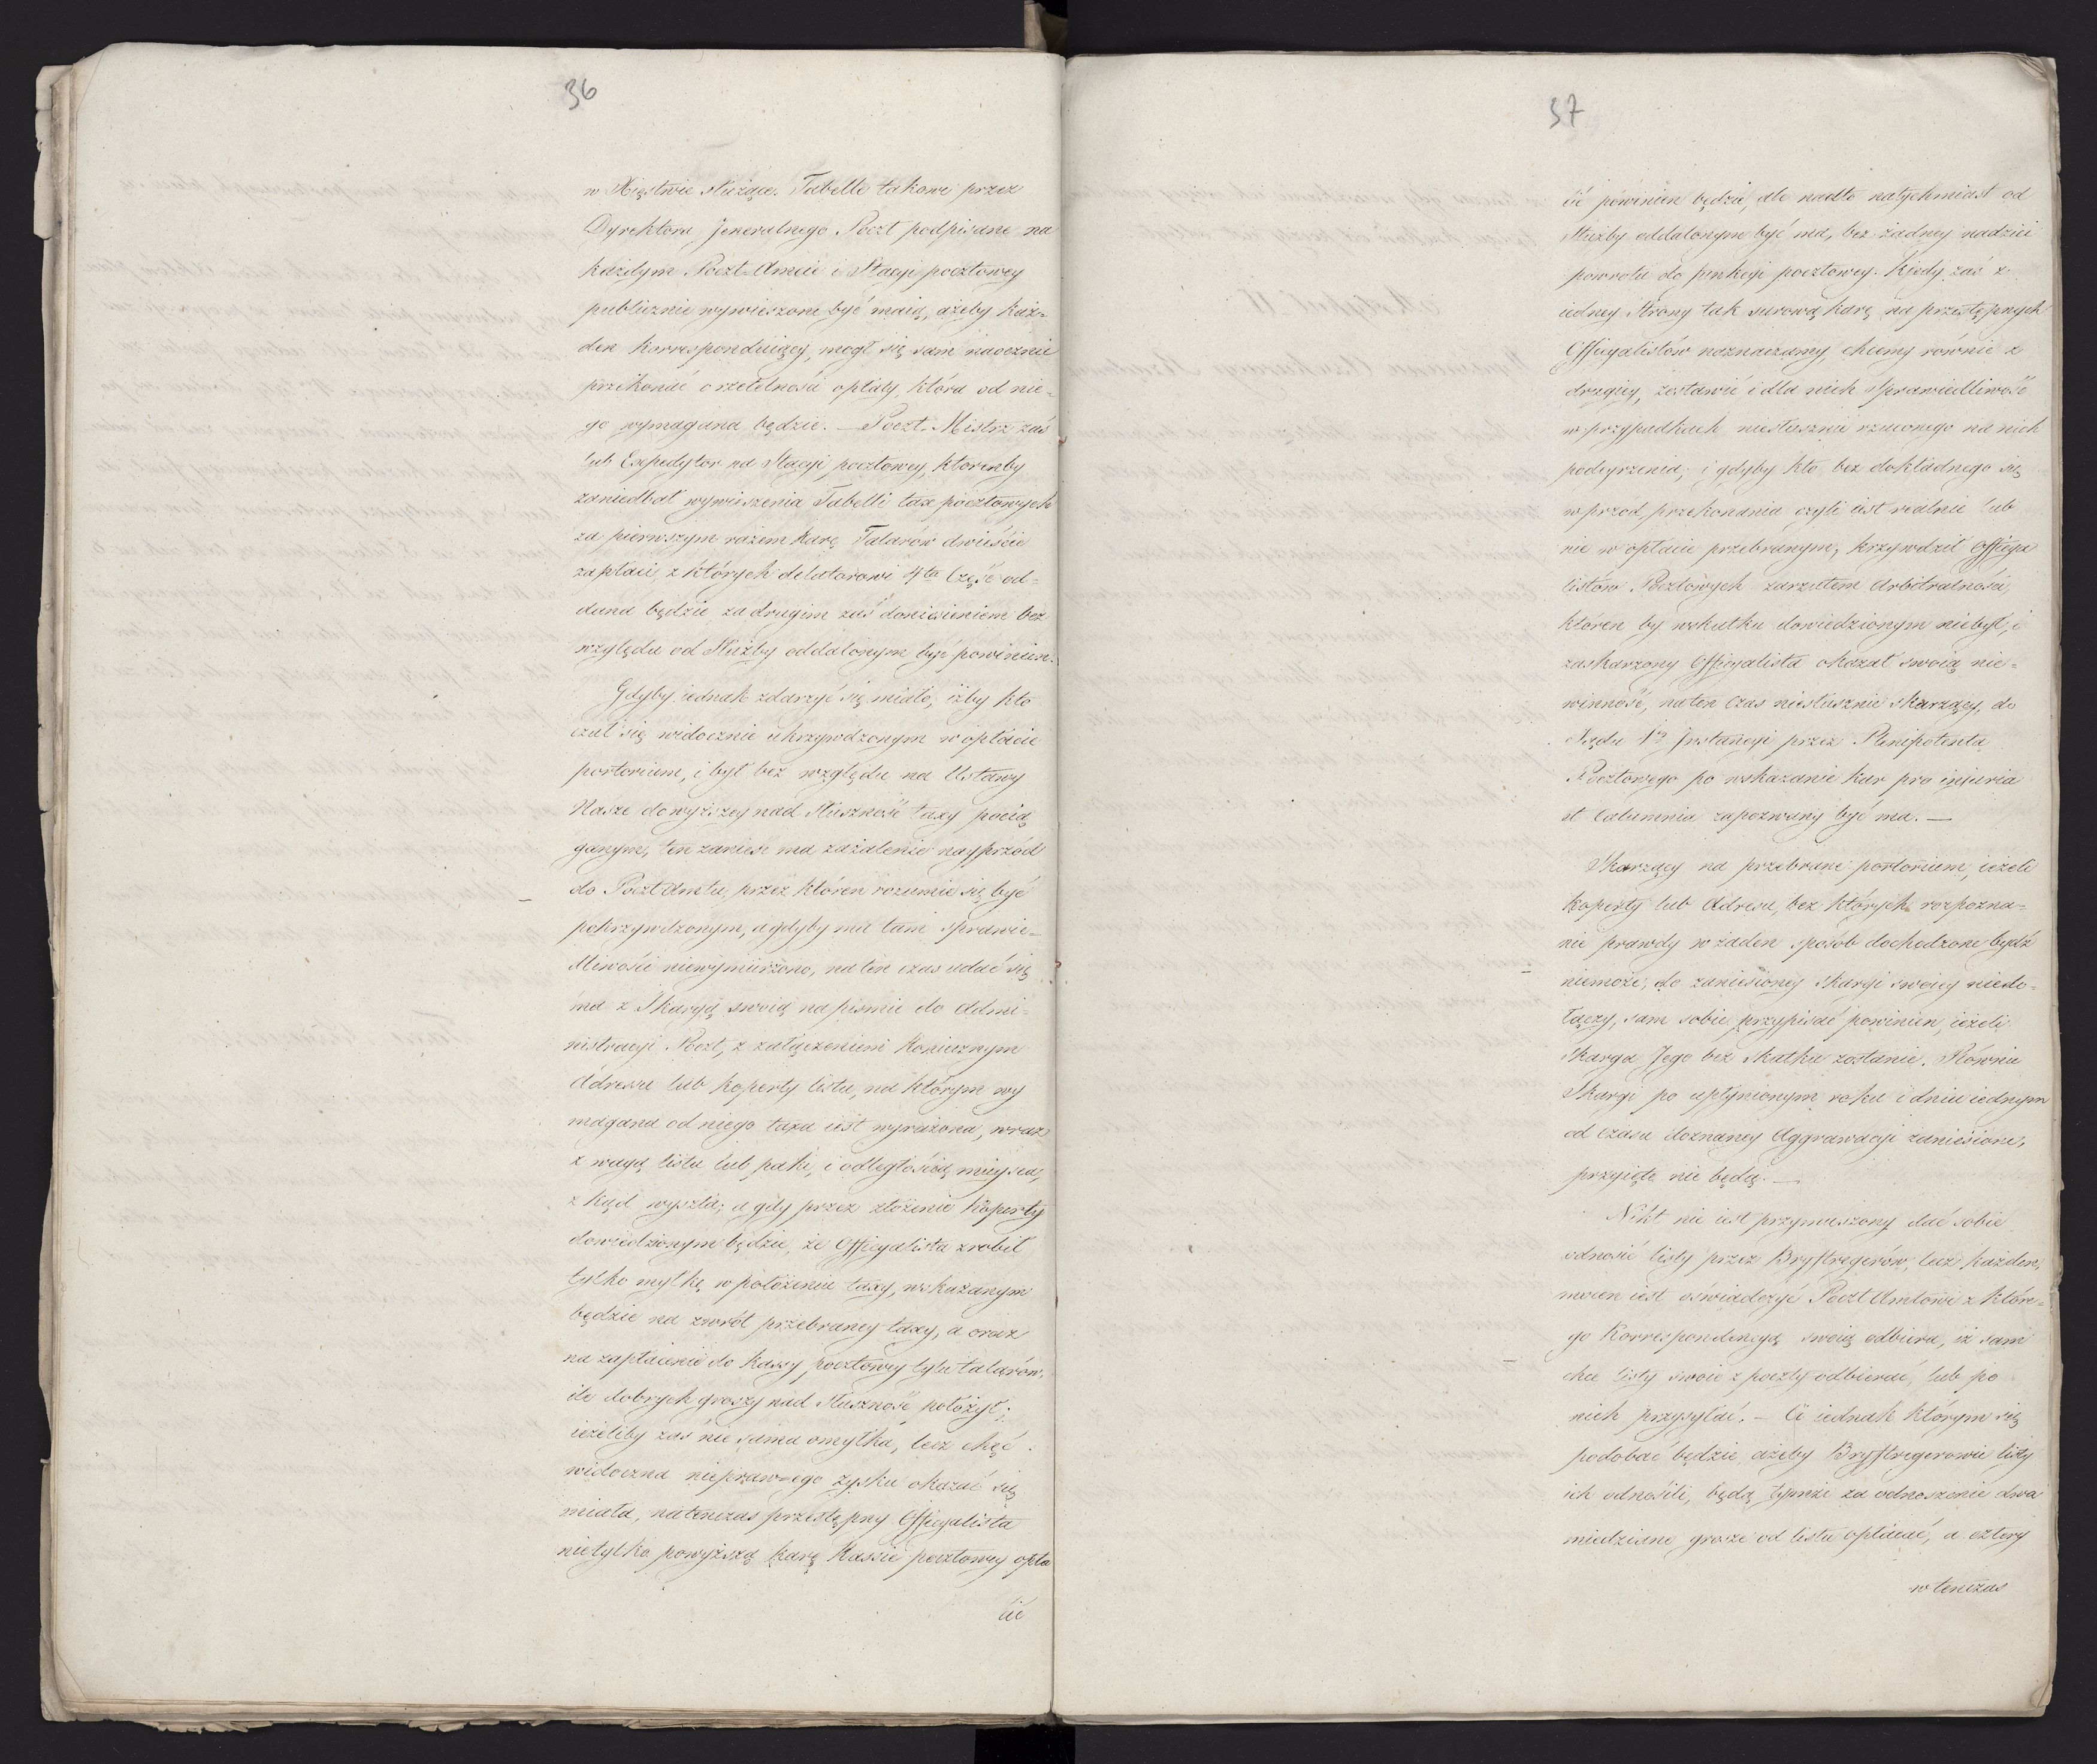 36
w Xięstwie służące. Tabelle takowe przez
Dyrektora Jeneralnego Poczt podpisane na
każdym Poczt-Amcie i Stacyi pocztowey
publicznie wywieszone być maią, ażeby każ-
den korrespondujący, mogł się sam naocznie
przekonać o rzetelności opłaty, która od nie-
go wymagana będzie. — Poczt-Mistrz zaś
lub Expedytor na Stacyi pocztowey, ktorenby
zaniedbał wywieszenia Tabelli tax pocztowych
za pierwszym razem karę Talarów dwieście
zapłaci, z których delatorowi 4ta Część od-
dana będzie, za drugim zaś doniesieniem bez
względu od Służby oddalonym być powinien.
Gdyby iednak zdarzyć się miało, iżby kto
czuł się widocznie ukrzywdzonym w opłacie
portorium, i był bez względu na Ustawy
Nasze do wyższey nad Słuszność taxy pocią
ganym, ten zanieść ma zażalenie nayprzód
do Poczt Amtu, przez któren rozumie się być
pokrzywdzonym, a gdyby mu tam sprawie-
dliwości niewymierzono, na ten czas udać się
ma z Skargą swoią na pismie do Admi-
nistracyi Poczt, z załączeniem koniecznym
Adressu lub koperty listu, na którym wy
magana od niego taxa iest wyrażona, wraz
z wagą listu lub paki, i odległością mieysca,
z kąd wyszła; a gdy przez złożenie koperty
dowiedzionym będzie, że Officyalista zrobił
tylko myłkę w położeniu taxy, wskazanym
będzie na zwrót przebraney taxy, a oraz
na zapłacenie do kassy pocztowey tylu talarów,
ile dobrych groszy nad Słuszność położył;
ieżeliby zaś nie sama omyłka, lecz chęć
widoczna nieprawnego zysku okazać się
miała, natenczas przestępny Officyalista
nietylko powyższą karę Kassie pocztowey opła
cić
37
cić powinien będzie, ale nadto natychmiast od
Służby oddalonym być ma, bez żadney nadziei
powrotu do funkcyi pocztowey. Kiedy zaś z
iedney Strony tak surową karę na przestępnych
Officyalistów naznaczamy, chcemy rownie z
drugiey, zostawić i dla nich Sprawiedliwość
w przypadkach niesłusznie rzuconego na nich
podeyrzenia; i gdyby kto bez dokładnego się
w przod przekonania czyli iest realnie lub
nie w opłacie przebranym, krzywdził Officya
listów Pocztowych zarzutem Arbitralności,
któren by wskutku dowiedzionym niebył, i
zaskarzony Officyalista okazał swoią nie-
winność, na ten czas niesłusznie Skarzący, do
Sądu 1ey Instancyi przez Plenipotenta
Pocztowego po wskazanie kar pro injuria
et Calumnia zapozwany być ma. —
Skarzący na przebrane portorium, ieżeli
koperty lub Adresu, bez których rozpozna-
nie prawdy w żaden sposób dochodzone bydź
niemoże, do zaniesioney Skargi swoiey niedo-
łączy, sam sobie przypisać powinien, ieżeli
Skarga Jego bez Skutku zostanie. Równie
Skargi po upłynionym roku i dniu iednym
od czasu doznaney Aggrawacyi zaniesione,
przyięte nie będą. —
Nikt nie iest przymuszony dać sobie
odnosić listy przez Bryftregerów, lecz każden,
mocen iest oświadczyć Poczt Amtowi z które-
go korrespondencyą swoią odbiera, iż sam
chce listy swoie z poczty odbierać, lub po
nich przysyłać. — Ci iednak którym się
podobać będzie, ażeby Bryftregerowie listy
ich odnosili, będą tymże za odnoszenie dwa
miedziane grosze od listu opłacać, a cztery
w tenczas